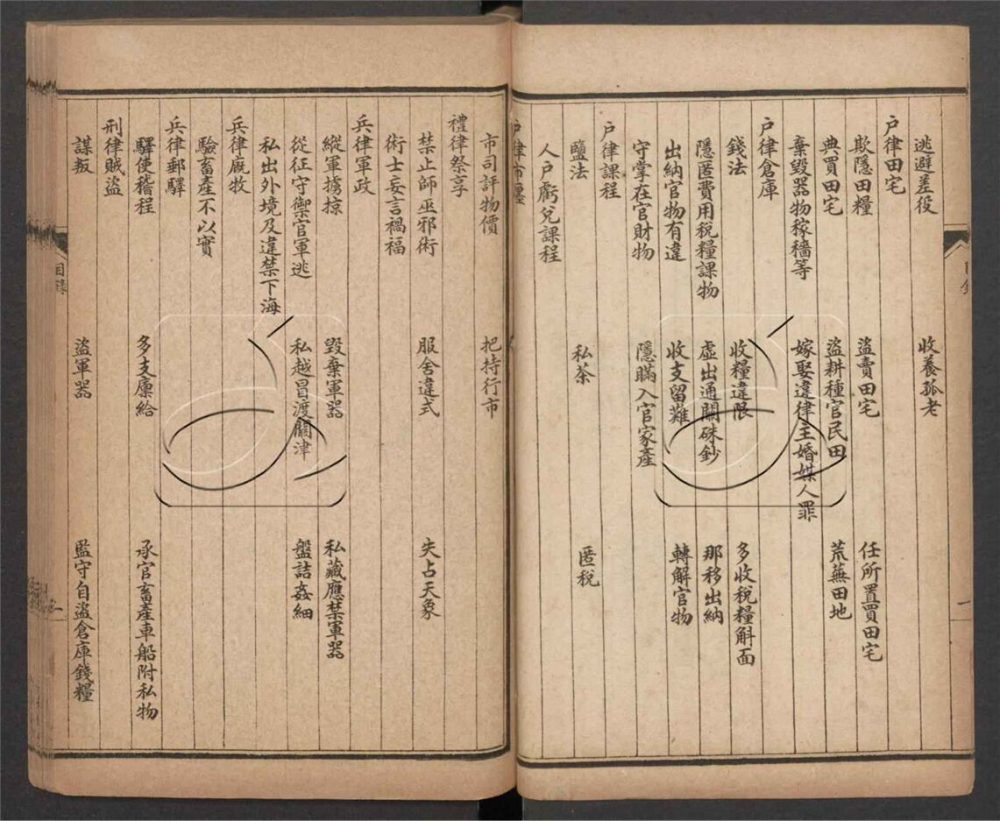 逃避差役 收養孤老
户律田宅
欺隱田糧 盜賣田宅 任所置買田宅
典買田宅 盜耕種官民田 荒蕪田地
棄毀器物稼穡等 嫁娶違律主婚媒人罪
户律倉庫
錢法 收糧違限 多收稅糧斛面
隱匿費用稅糧課物 虛出通關硃鈔 那移出納
出納官物有違 收支留難 轉解官物
守掌在官財物 隱瞞入官家産
户律課程
鹽法 私茶 匿稅
人户虧兌課程
户律市廛
市司評物價 把持行市
禮律祭享
禁止師巫邪術 服舍違式 失占天象
術士妄言禍福
兵律軍政
縱軍擄掠 毀棄軍器 私藏應禁軍器
從征守禦官軍逃 私越冒渡關津 盤詰姦細
私出外境及違禁下海
兵律廐牧
驗畜產不以實
兵律郵驛
驛使稽程 多支廩給 承官畜產車船附私物
刑律賊盜
謀叛 盜軍器 監守自盜倉庫錢糧
目錄